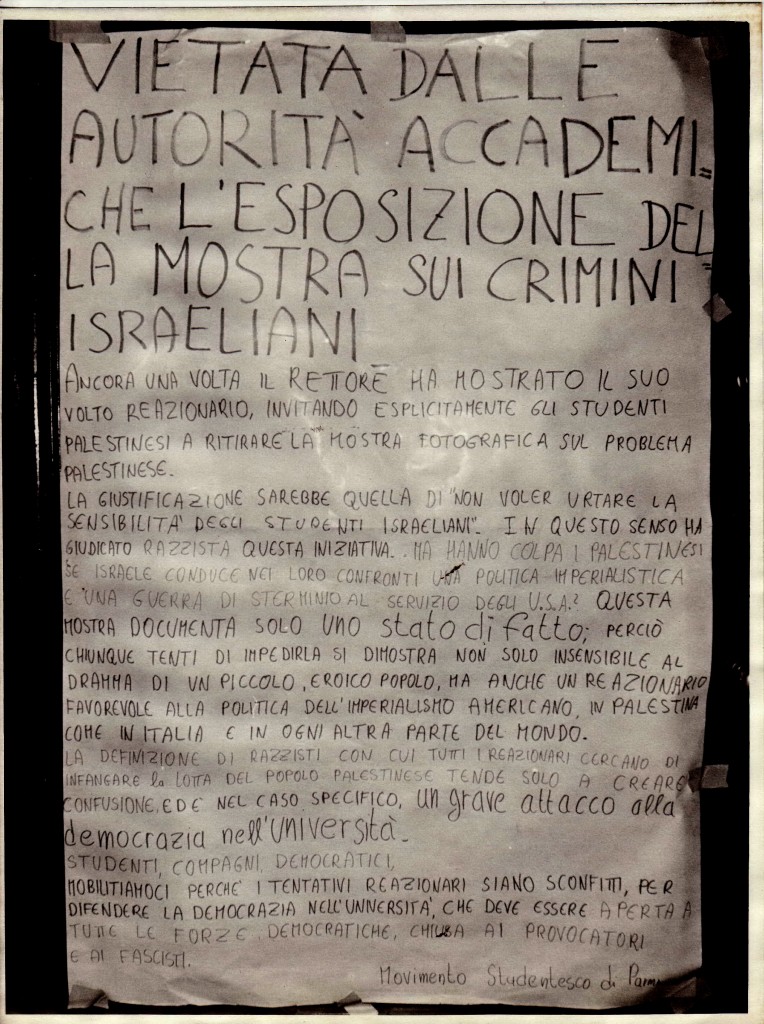 VIETATA DALLE
AUTORITÀ ACCADEMI=
CHE L'ESPOSIZIONE DEL=
LA MOSTRA SUI CRIMINI
ISRAELIANI
ANCORA UNA VOLTA IL RETTORE HA MOSTRATO IL SUO
VOLTO REAZIONARIO, INVITANDO ESPLICITAMENTE GLI STUDENTI
PALESTINESI A RITIRARE LA MOSTRA FOTOGRAFICA SUL PROBLEMA
PALESTINESE.
LA GIUSTIFICAZIONE SAREBBE QUELLA DI "NON VOLER URTARE LA
SENSIBILITA' DEGLI STUDENTI ISRAELIANI". IN QUESTO SENSO HA
GIUDICATO RAZZISTA QUESTA INIZIATIVA. MA HANNO COLPA I PALESTINESI
SE ISRAELE CONDUCE NEI LORO CONFRONTI UNA POLITICA IMPERIALISTICA
E UNA GUERRA DI STERMINIO AL SERVIZIO DEGLI U.S.A.? QUESTA
MOSTRA DOCUMENTA SOLO UNO stato di fatto; PERCIÒ
CHIUNQUE TENTI DI IMPEDIRLA SI DIMOSTRA NON SOLO INSENSIBILE AL
DRAMMA DI UN PICCOLO, EROICO POPOLO, MA ANCHE UN REAZIONARIO
FAVOREVOLE ALLA POLITICA DELL'IMPERIALISMO AMERICANO, IN PALESTINA
COME IN ITALIA E IN OGNI ALTRA PARTE DEL MONDO.
LA DEFINIZIONE DI RAZZISTI CON CUI TUTTI I REAZIONARI CERCANO DI
INFANGARE la LOTTA DEL POPOLO PALESTINESE TENDE SOLO A CREARE
CONFUSIONE, ED E' NEL CASO SPECIFICO, un grave attacco alla
democrazia nell'università.
STUDENTI, COMPAGNI, DEMOCRATICI,
MOBILITIAMOCI PERCHE' I TENTATIVI REAZIONARI SIANO SCONFITTI, PER
DIFENDERE LA DEMOCRAZIA NELL'UNIVERSITA', CHE DEVE ESSERE APERTA A
TUTTE LE FORZE DEMOCRATICHE, CHIUSA AI PROVOCATORI
E AI FASCISTI.
Movimento Studentesco di